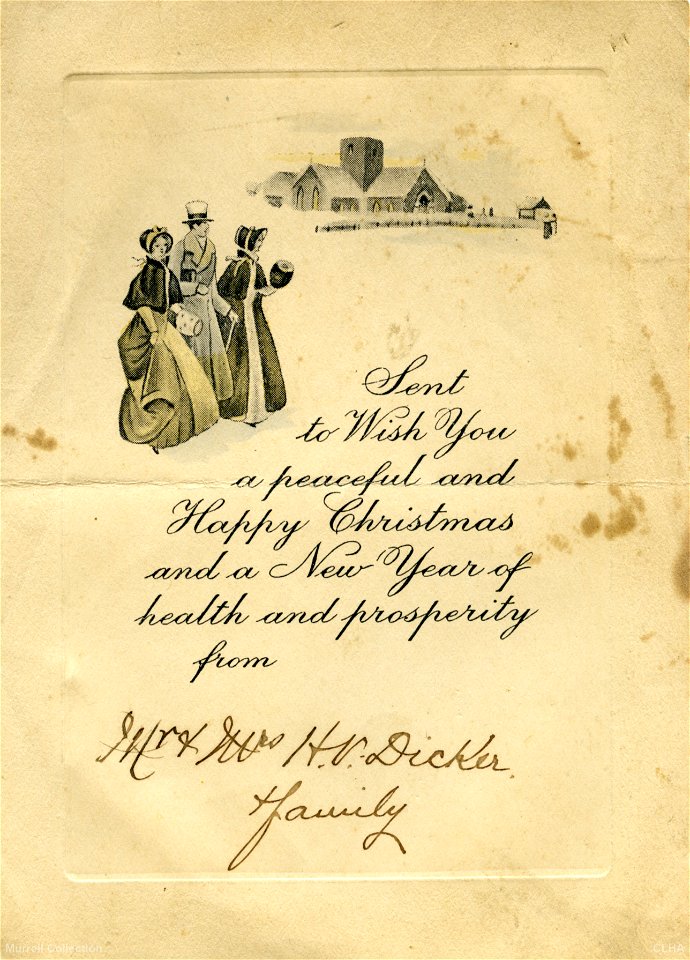 Sent
to Wish You
a peaceful and
Happy Christmas
and a New Year of
health and prosperity
from
Mr & Mrs H.V. Dicker.
& family
Murrell Collection
CLHA